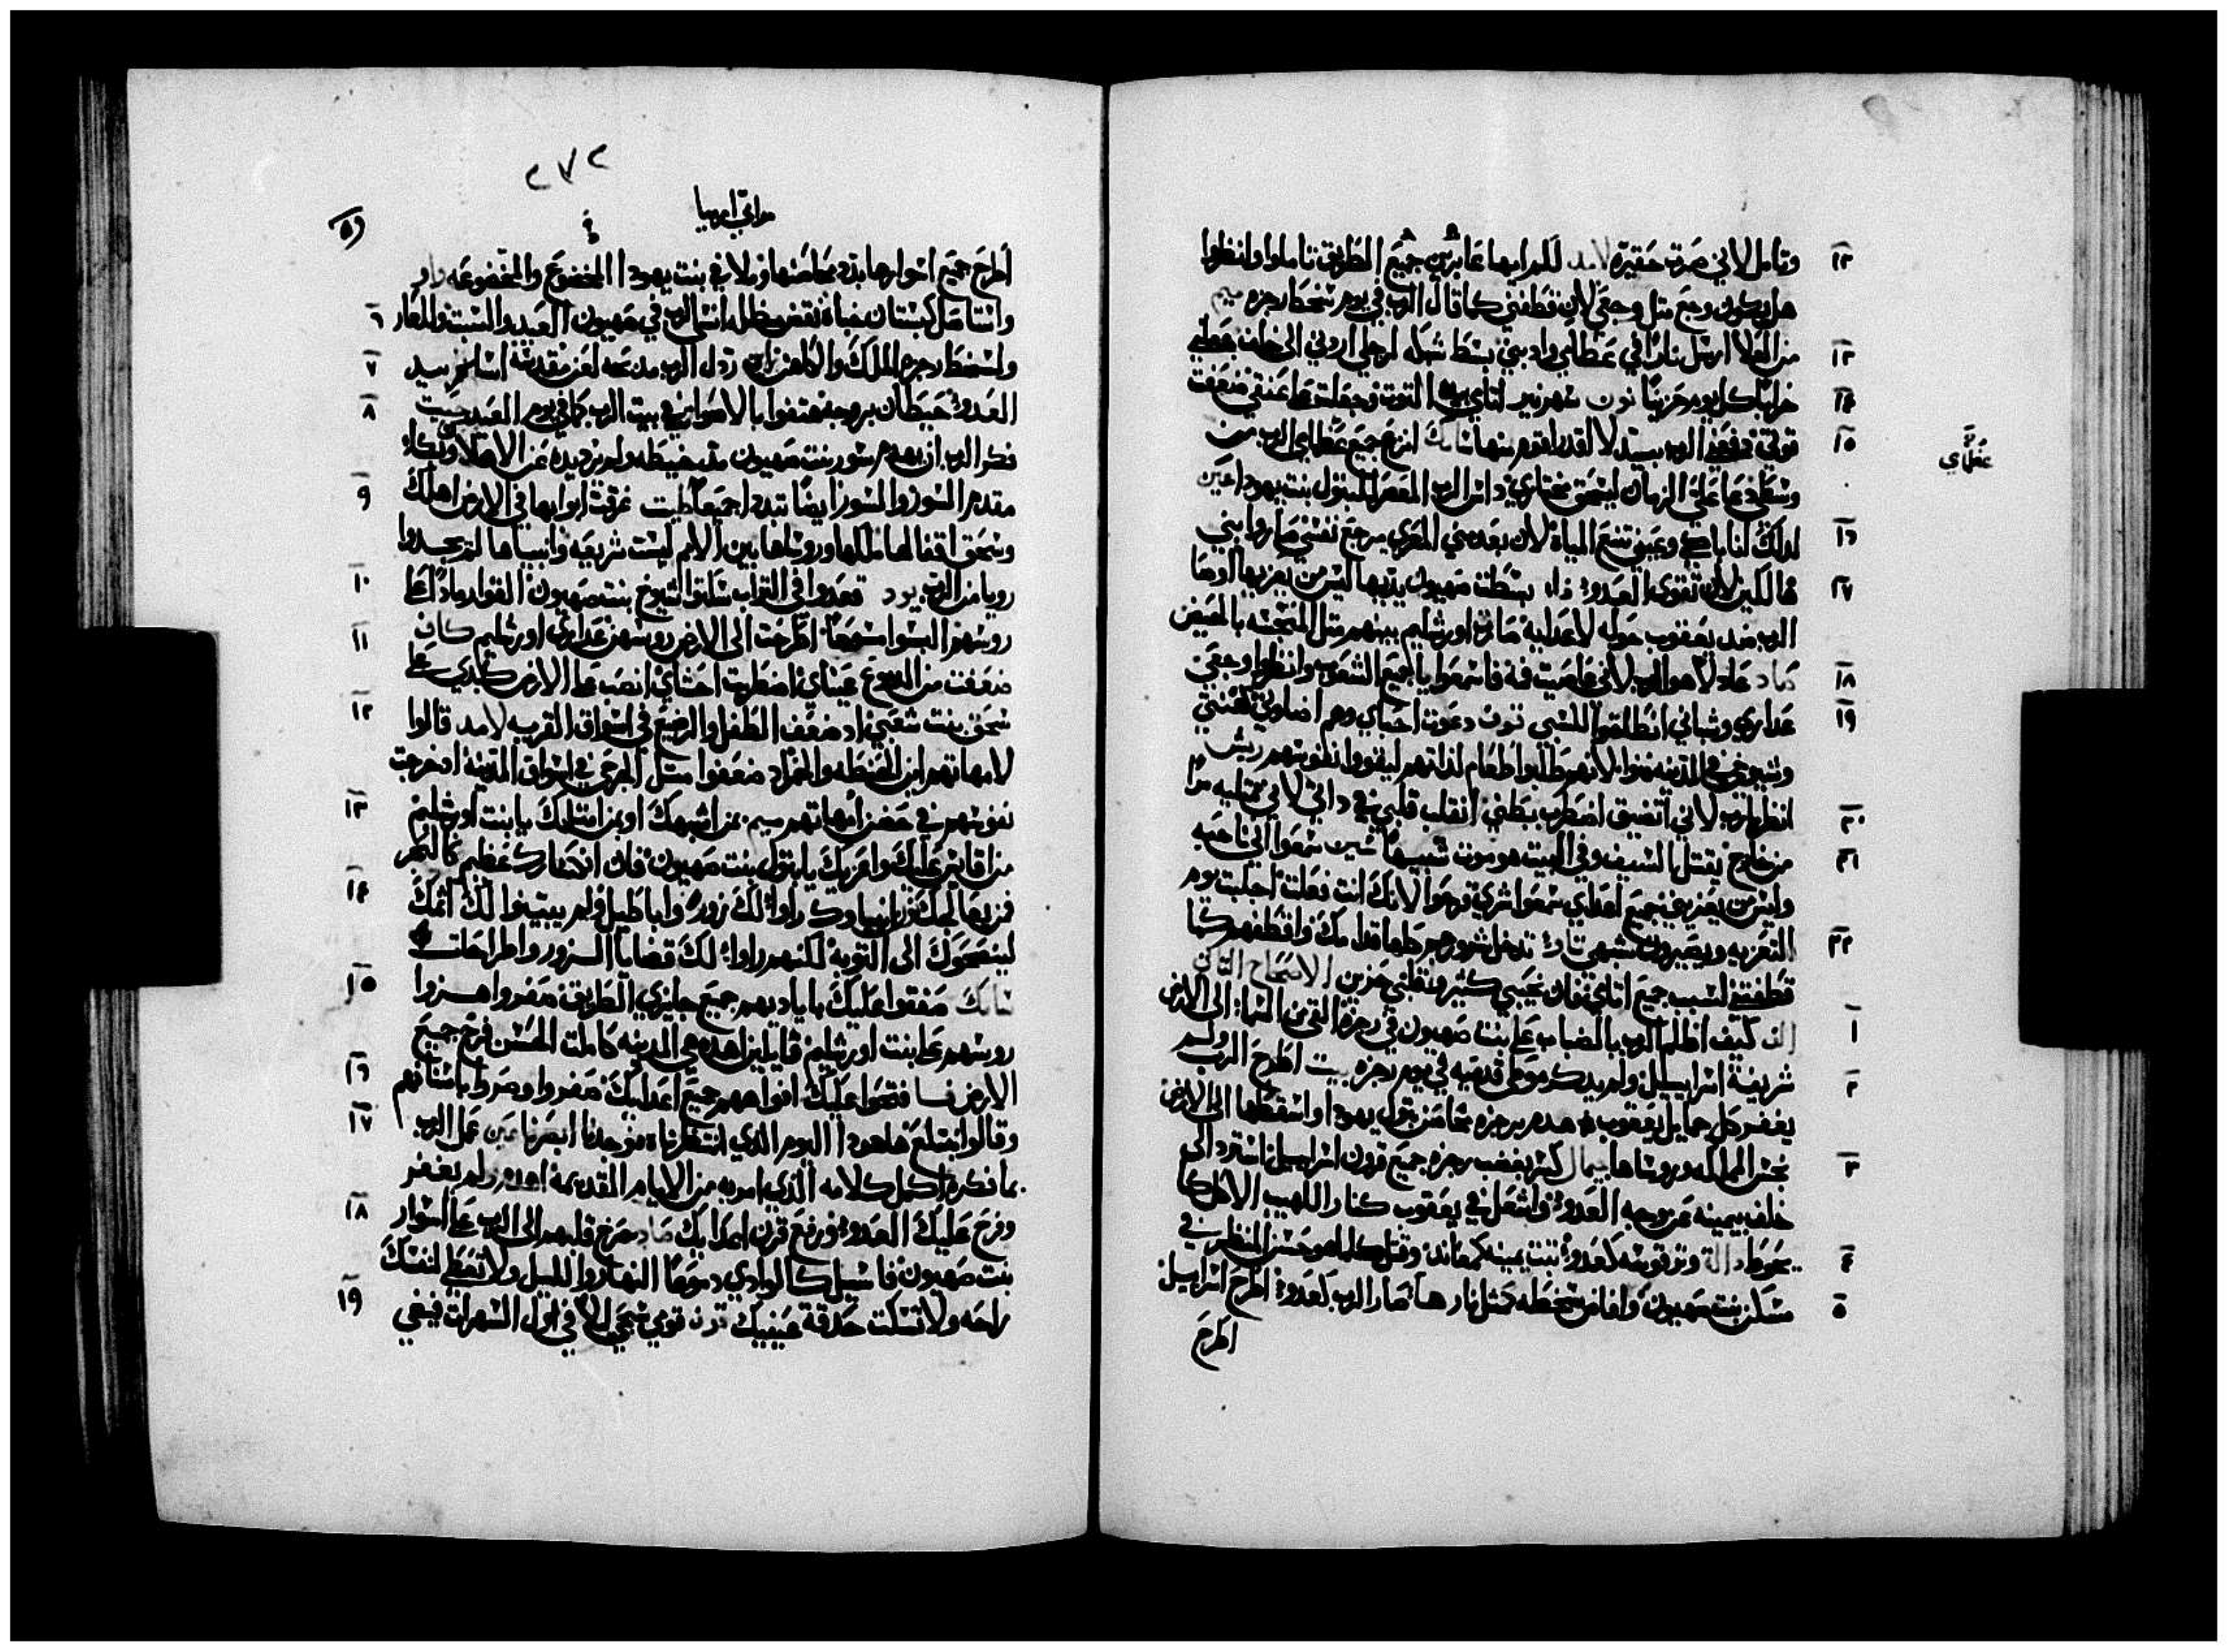 وتامل لاني صرت حقيرة لامد للم ايها عابرين جميع الطريق تاملوا وانظروا
هل يكون وجع مثل وجعي لان قطفني كما قال الرب في يوم سخط رجزه ميم
من العلا ارسل نارا في عظامي وادبني بسط شبكه لرجلي اردني الى خلف جعلني
خرابا كل يوم حزينا نون سهر نير اثامي التوت وجعلت على عنقي ضعفت
قوتي دفعني الرب بيد لا اقدر اقوم منها سامك انزع جميع عظماي الرب من
وسطي دعا علي الزمان ليسحق مختاري داس الرب المعصر لبتول بنت يهودا عين
لذلك انا باكي وعيني تنبع المياه لان بعد مني المعزي مرجع نفسي صاروا بني
هالكين لان تقوى العدو فا بسطت صهيون يديها ليس من يعزيها اوصا
الرب ضد يعقوب حوله لاعدايه صارة اورشليم بينهم مثل المنجسه بالحيض
صاد عادلا هو الرب لاني عاصيت فه فاسمعوا يا جميع الشعوب وانظروا وجعي
عداري وشباني انطلقوا للسبي قوف دعوت احباي وهم اضلوني كهنتي
وشيوخي في المدينه فنوا لانهم طلبوا طعام لذاتهم ليقووا نفوسهم ريش
انظر يارب لاني اتضيق اضطرب بطني انقلب قلبي في داتي لاني ممتليه مرا
من خارج يقتل بالسيف وفي البيت هو موت شبيها شين سمعوا اني ناحبه
وليس من يعزيني جميع اعداي سمعوا شري فرحوا لانك انت فعلت اجلبت يوم
التعزيه ويصيرون شبهي تاو تدخل شرورهم كلها قدامك واقطفهم كما
قطفتني لسبب جميع اثامي فان نحيبي كثير وقلبي حزين الاصحاح الثاني
الف كيف اظلم الرب بالضباب على بنت صهيون في رجزه القى من السما الى الارض
شريفة اسراييل ولم يذكر موطي قدميه في يوم رجزه بيت اطرح الرب ولم
يغفر كل جمايل يعقوب هدم برجزه محاصن بتول يهودا واسقطها الى الارض
نجس المملكه وروساها جيمال كسر بغضب رجزه جميع قرون اسراييل استرد الى
خلف يمينه عن وجه العدو واشعل في يعقوب كنار اللهيب الاكل كما
يحوط دالة وتر قوسه كعدو ثبت يمينه كمعاند وقتل كلما هو حسن المنظر في
مسكن بنت صهيون وافاض سخطه كمثل نار ها صار الرب كعدو اطرح اسراييل
اطرح
١٢
١٣
١٤
١٥
١٦
١٧
١٨
١٩
٢٠
٢١
٢٢
١
٢
٣
٤
٥
عظماي
٢٧٢
مراثي ارميا
٥٩
اطرح جميع اسوارها بدد محاصنها وملا في بنت يهودا المخضوع والمخضوعه واو
واستاصل كبستان خباه نقض مظله انسى الرب في صهيون العيد والسبت والعار
واسخط رجزه الملك والكاهن زاي رذل الرب مذبحه لعن مقدسه اسلم بيد
العدو حيطان بروجه هتفوا بالاصوات في بيت الرب كما في يوم العيد حيت
فكر الرب ان يهدم سور بنت صهيون مد خيطه ولم يرد يده عن الاهلاك وبكا
مقدم السور والسور ايضا تبدد جميعا طيت غرقت ابوابها في الارض اهلك
وسحق اقفالها ملكها وروساها بين الامم ليست شريعه وانبياها لم يجدوا
رويا من الرب يود قعدوا في التراب سكتوا الشيوخ بنت صهيون القوا رمادا على
روسهم البسوا مسوحا اطرحت الى الارض روسهن عداري اورشليم كاف
ضعفت من الدموع عيناي اضطربت احشاي انصب على الارض كبدي على
سحق بنت شعبي اد ضعف الطفل والرضيع في اسواق القريه لامد قالوا
لامهاتهم اين الحنطه والخمر اد ضعفوا مثل الجرحي في اسواق المدينة اد خرجت
نفوسهم في حضن امهاتهم ميم بمن اشبهك او بمن امثلك يا بنت اورشليم
من اقايس عليك واعزيك يا بتول بنت صهيون فان انكسارك عظيم كالبحر
فمن يعالجك نون انبياوك راوا لك زورا واباطيل ولم يبينوا لك اثمك
لينصحوك الى التوبة لكنهم راوا لك قضايا الزور واطراحات
سامك صفقوا عليك باياديهم جميع جايزي الطريق صفروا وهزوا
روسهم على بنت اورشليم قايلين اهذه هي المدينه كاملت الحسن فرح جميع
الارض فا فتحوا عليك افواههم جميع اعدايك صفروا وصروا باسنانهم
وقالوا نبتلع هاهودا اليوم الذي انتظرناه فوجدنا ابصرنا عين عمل الرب
بما فكره اكمل كلامه الذي امر به من الايام القديمه اهدم ولم يغفر
وفرح عليك العدو ورفع قرن اعدايك صاد صرخ قلبهم الى الرب على اسوار
بنت صهيون فاسيل كالوادي دموعا النهار والليل ولا تعطي لنفسك
راحه ولا تسكت حدقة عينيك قون قومي سبحي ليلا في اول السهرات فيضي
٦
٧
٨
٩
١٠
١١
١٢
١٣
١٤
١٥
١٦
١٧
١٨
١٩